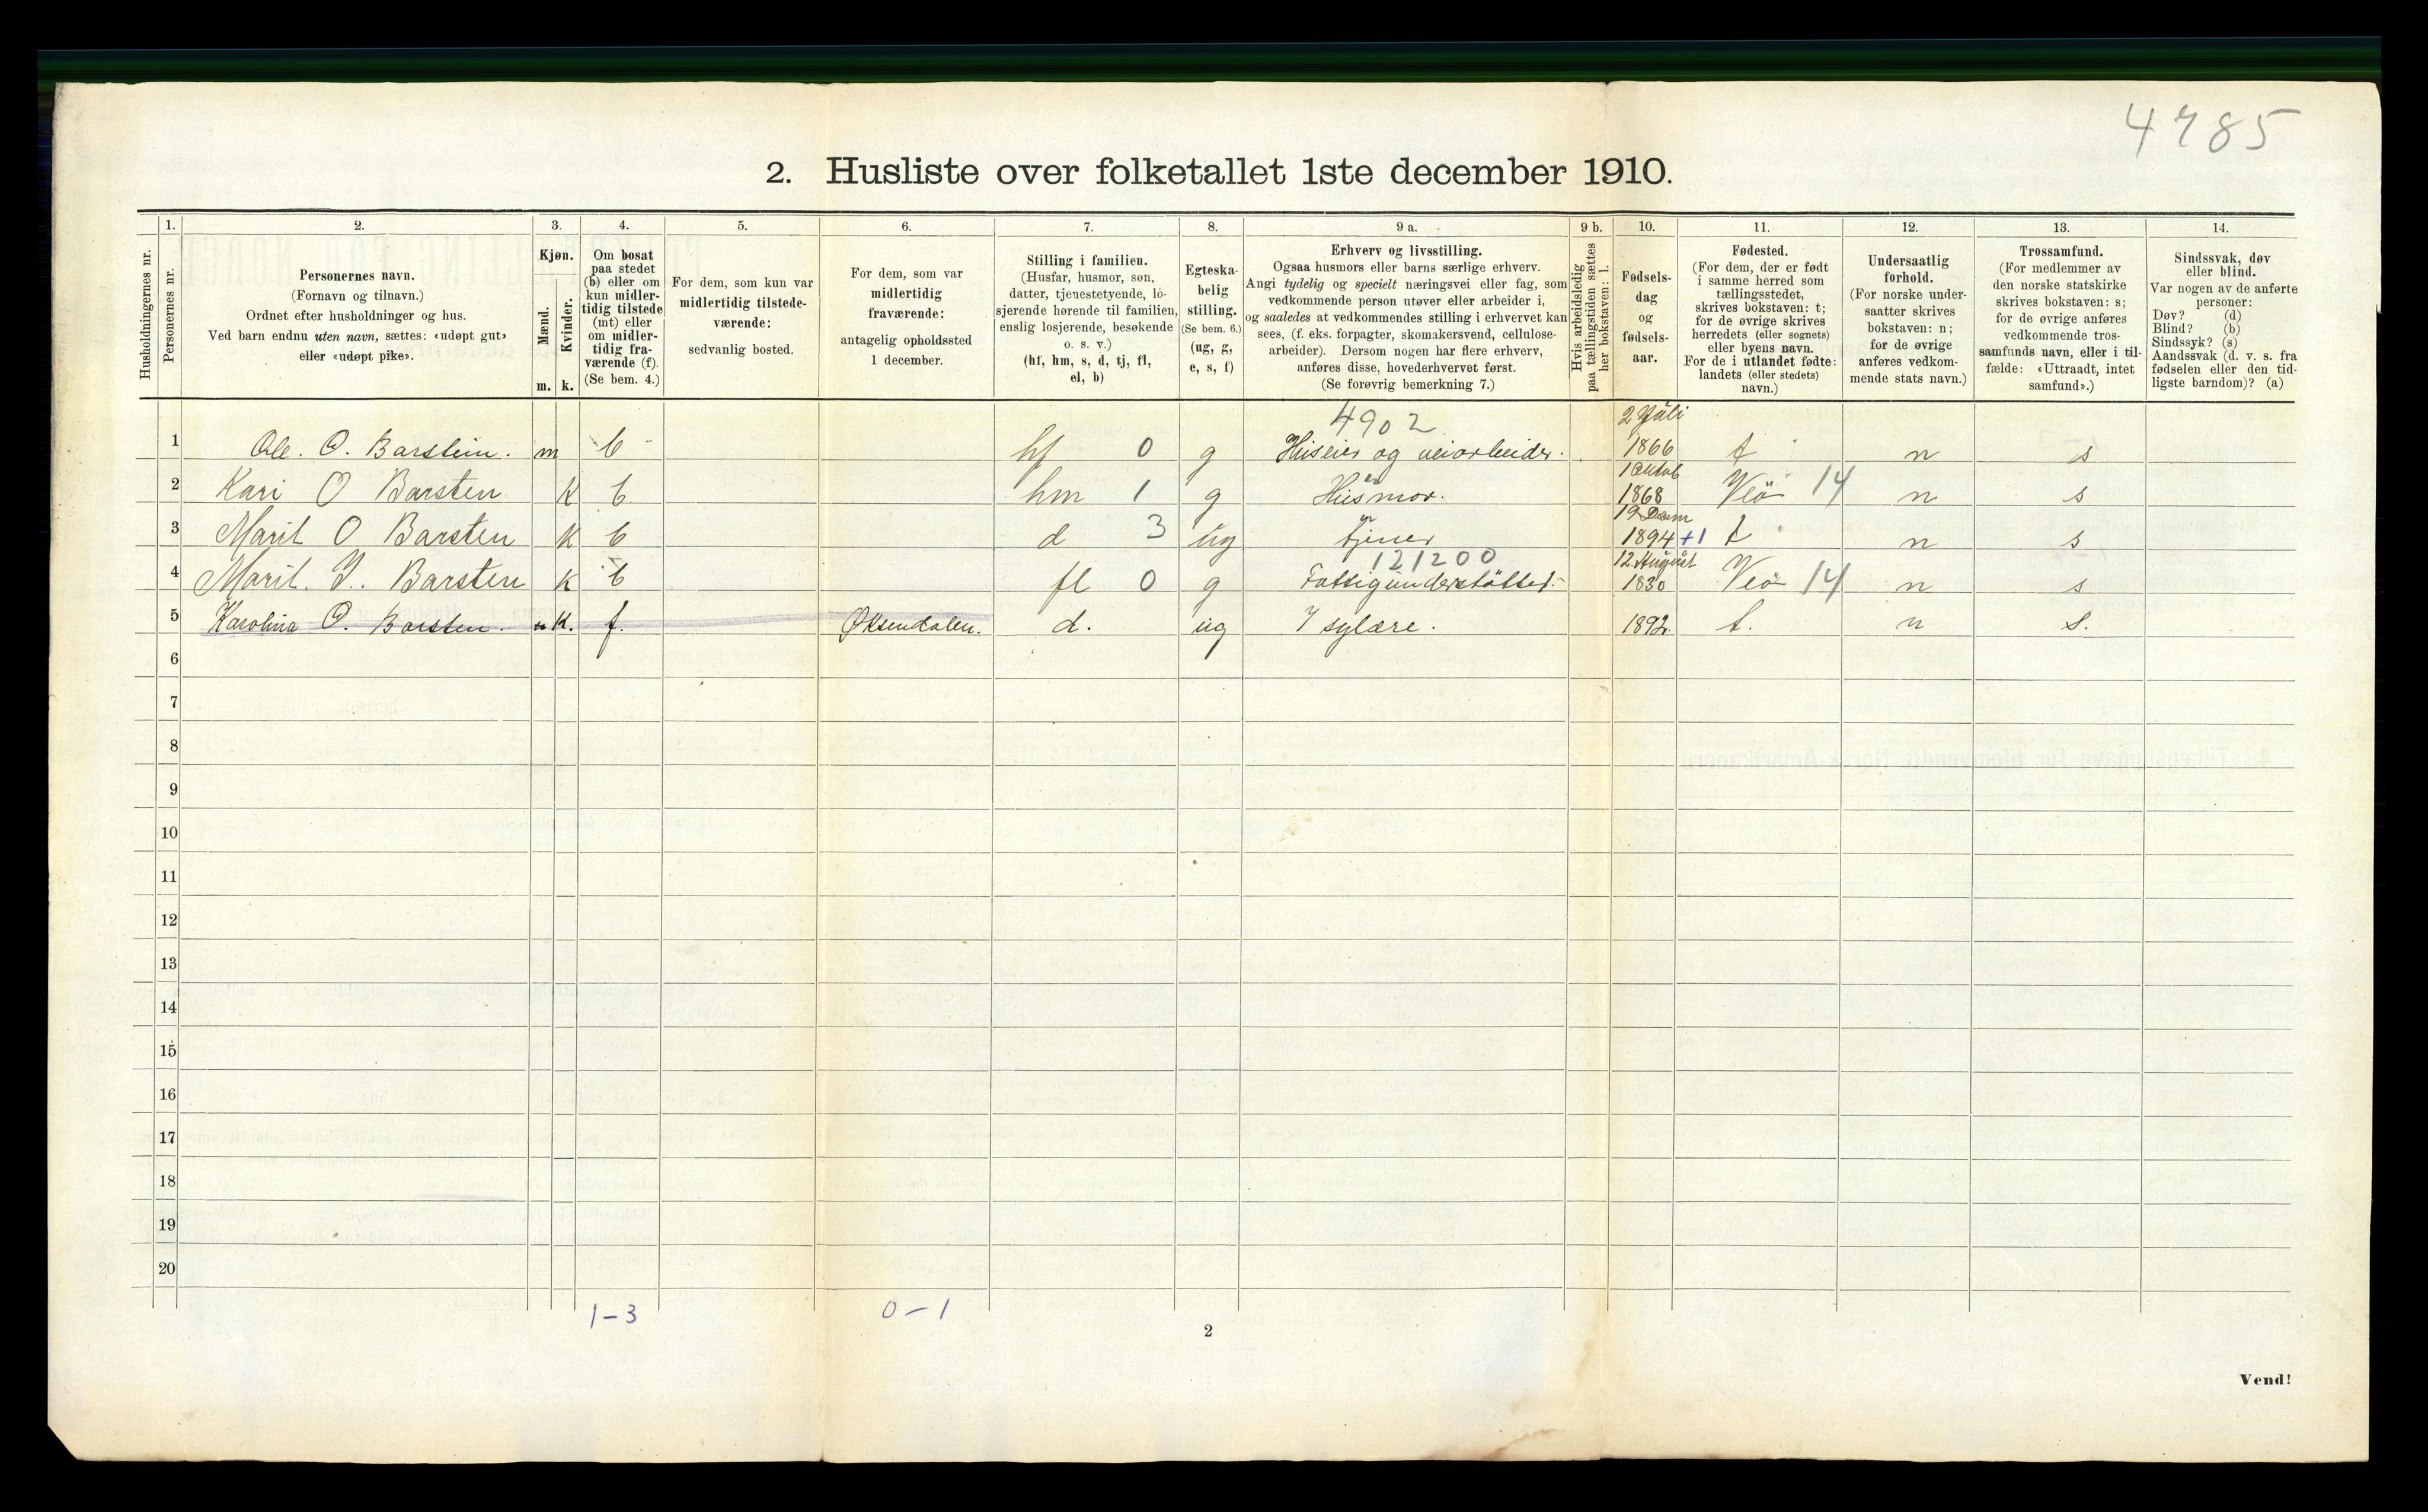 4785
2. Husliste over folketallet 1ste december 1910.
Husholdningernes nr.
1.
Personernes nr.
2.
Personernes navn.
(Fornavn og tilnavn.)
Ordnet efter husholdninger og hus.
Ved barn endnu uten navn, sættes: «udøpt gut»
eller «udøpt pike».
3.
Kjøn.
Mænd.
Kvinder.
m. k.
4.
Om bosat
paa stedet
(b) eller om
kun midler-
tidig tilstede
(mt) eller
om midler-
tidig fra-
værende (f).
(Se bem. 4.)
5.
For dem, som kun var
midlertidig tilstede-
værende:
sedvanlig bosted.
6.
For dem, som var
midlertidig
fraværende:
antagelig opholdssted
1 december.
7.
Stilling i familien.
(Husfar, husmor, søn,
datter, tjenestetyende, lo-
sjerende hørende til familien,
enslig losjerende, besøkende
o. s. v.)
(hf, hm, s, d, tj, fl,
el, b)
8.
Egteska-
belig
stilling.
(Se bem. 6.)
(ug, g,
e, s, f)
9 a.
Erhverv og livsstilling.
Ogsaa husmors eller barns særlige erhverv.
Angi tydelig og specielt næringsvei eller fag, som
vedkommende person utøver eller arbeider i,
og saaledes at vedkommendes stilling i erhvervet kan
sees, (f. eks. forpagter, skomakersvend, cellulose-
arbeider). Dersom nogen har flere erhverv,
anføres disse, hovederhvervet først.
(Se forøvrig bemerkning 7.)
9 b.
Hvis arbeidsledig
paa tællingstiden sættes
her bokstaven: l.
10.
Fødsels-
dag
og
fødsels-
aar.
11.
Fødested.
(For dem, der er født
i samme herred som
tællingsstedet,
skrives bokstaven: t;
for de øvrige skrives
herredets (eller sognets)
eller byens navn.
For de i utlandet fødte:
landets (eller stedets)
navn.)
12.
Undersaatlig
forhold.
(For norske under-
saatter skrives
bokstaven: n;
for de øvrige
anføres vedkom-
mende stats navn.)
13.
Trossamfund.
(For medlemmer av
den norske statskirke
skrives bokstaven: s;
for de øvrige anføres
vedkommende tros-
samfunds navn, eller i til-
fælde: «Uttraadt, intet
samfund».)
14.
Sindssvak, døv
eller blind.
Var nogen av de anførte
personer:
Døv? (d)
Blind? (b)
Sindssyk? (s)
Aandssvak (d. v. s. fra
fødselen eller den tid-
ligste barndom)? (a)
4902 2 Juli
1 Ole. O. Barstein. m b hf 0 g Huseier og veiarbeider. 1866 t n s
2 Kari O Barsten k b hm 1 g Husmor. 1868 Veö 14 n s
3 Marit O Barsten k b d 3 ug tjener 1894 +1 t n s
121200 12 August
4 Marit. J. Barsten k b fl 0 g Fattigunderstöttet. 1830 Veö 14 n s
5 Karolina O. Barsten. k. f. Öksendalen. d. ug I sylære. 1892. t. n s.
6
7
8
9
10
11
12
13
14
15
16
17
18
19
20
1-3 0-1
2
Vend!